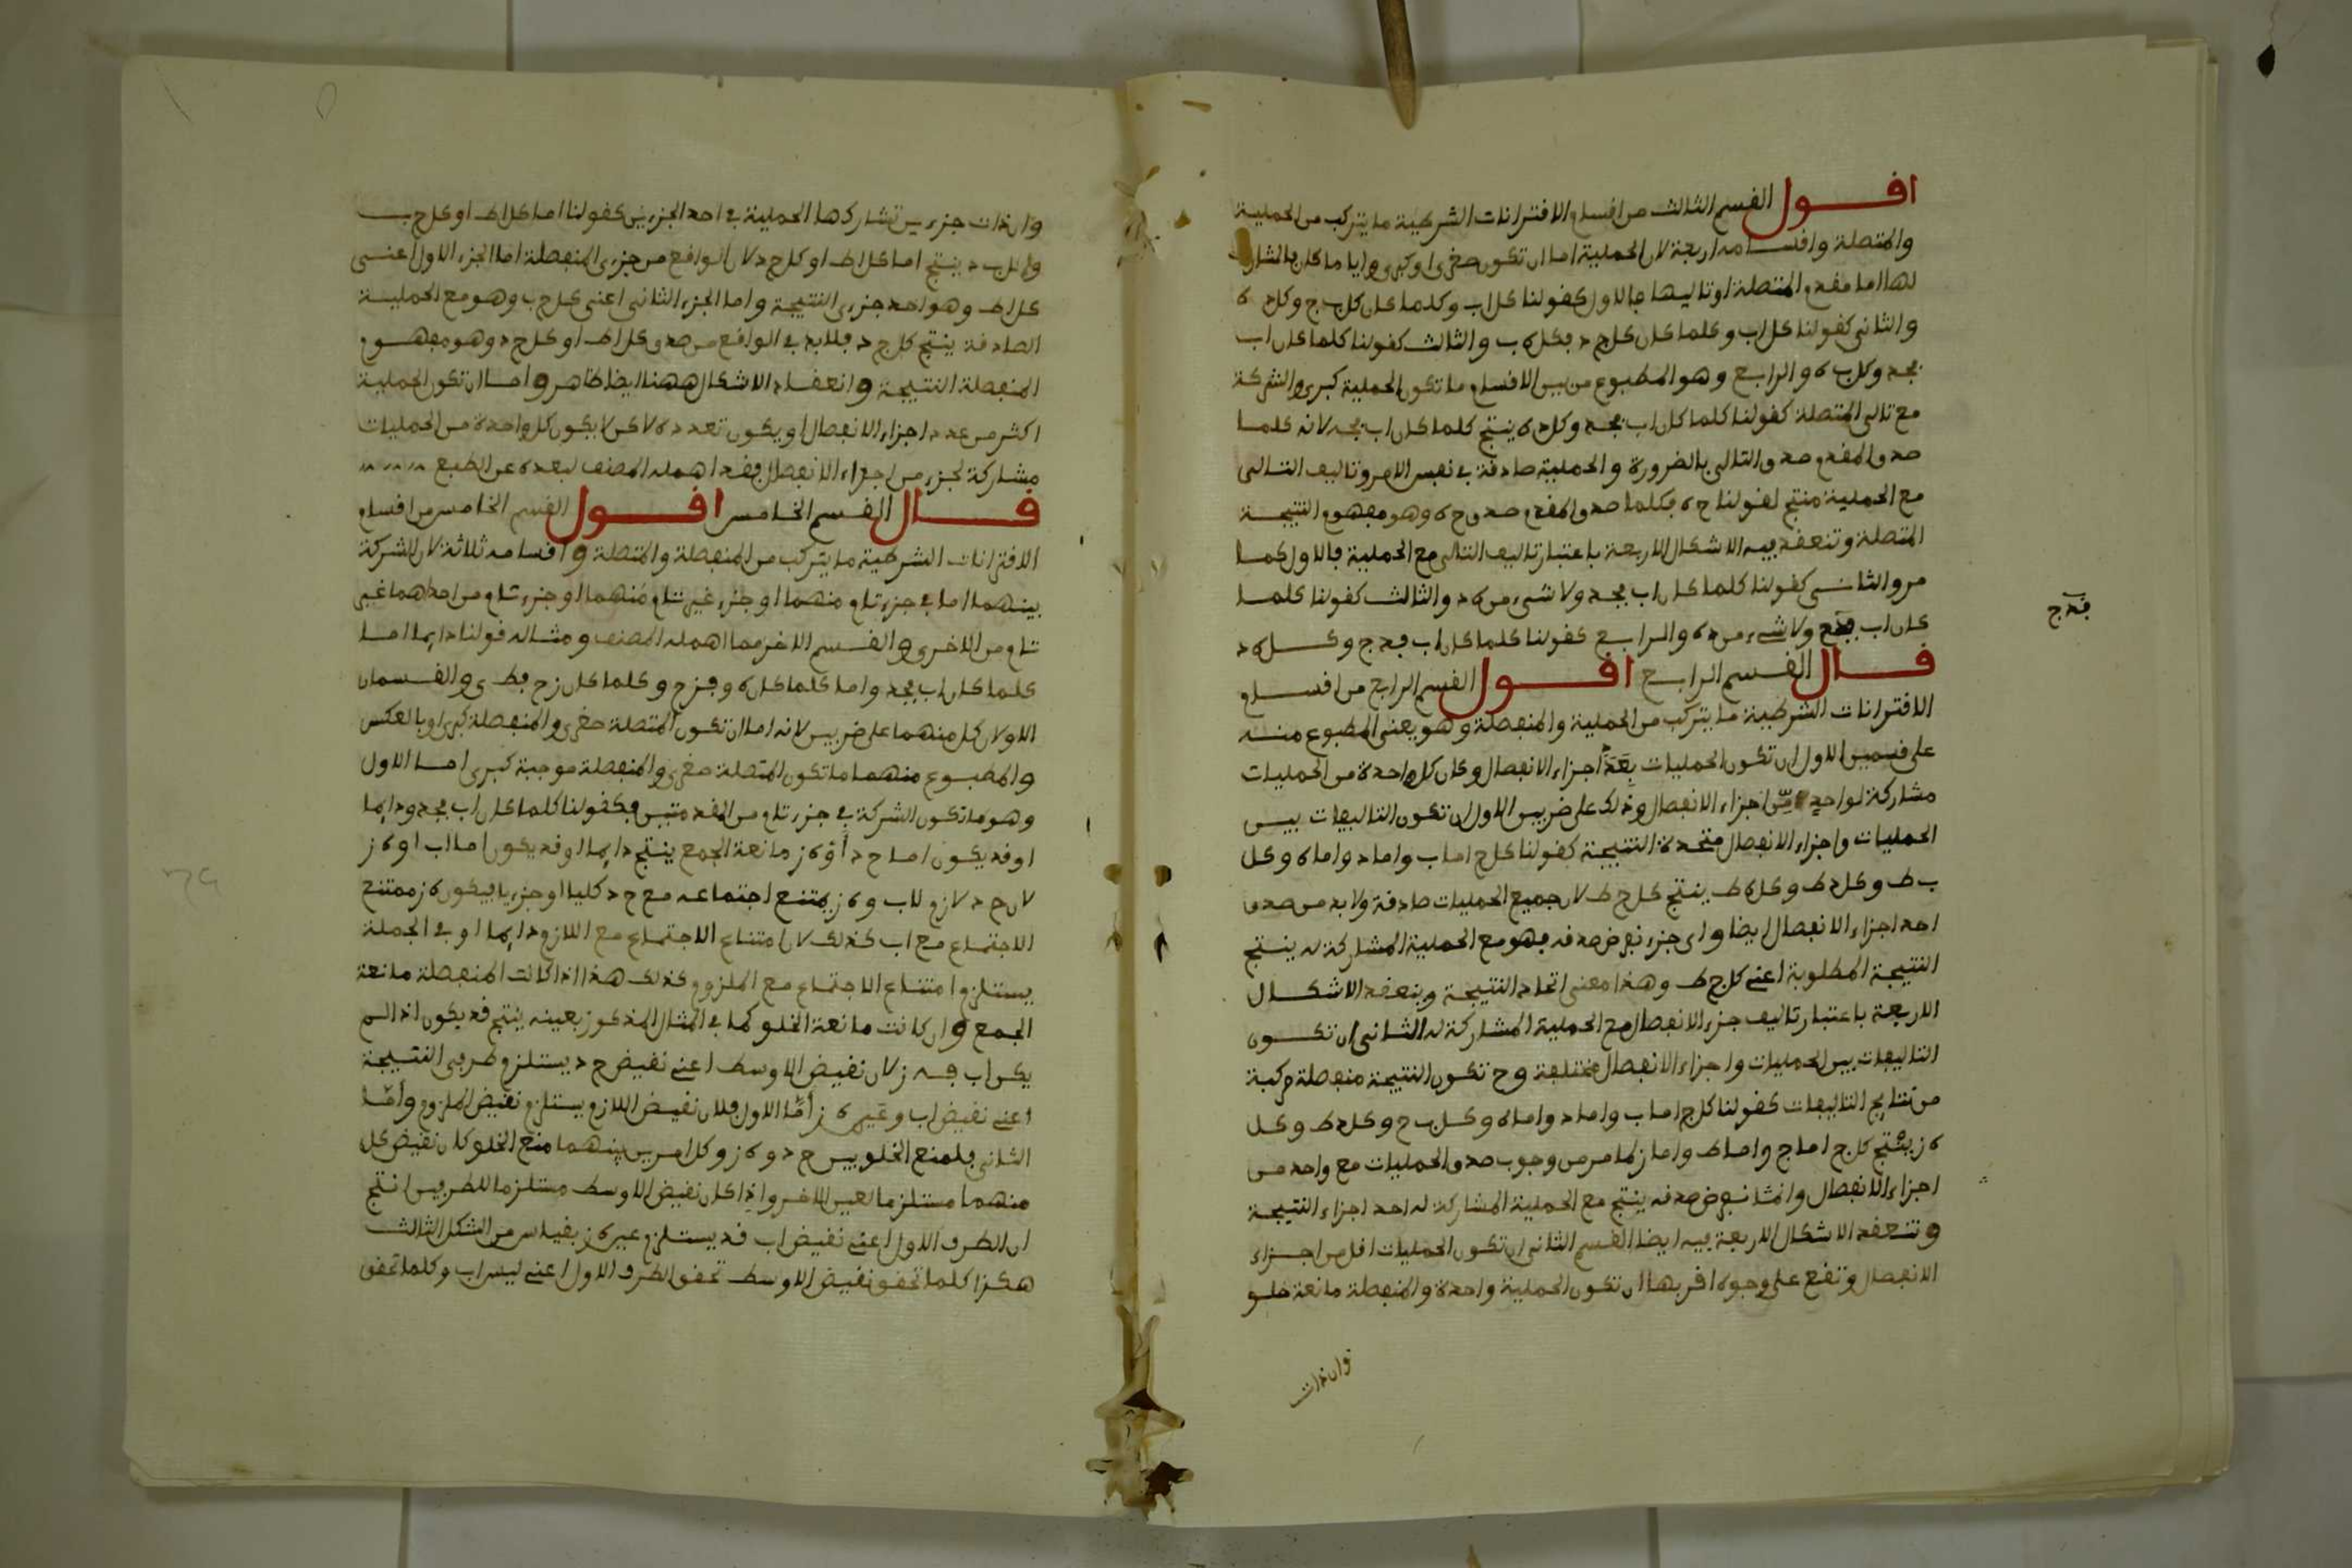 اقول القسم الثالث من اقسام الاقترانات الشرطية ما يتركب من الحملية
والمتصلة واقسامه اربعة لان الحملية اما ان تكون صغرى او كبرى وايا ما كان فالمشارك
لها اما مقدم المتصلة او تاليها فالاول كقولنا كل اب وكلما كان كل ب ج وكل د ه
والثانى كقولنا كل اب وكلما كان كل ج د فكل ه ب والثالث كقولنا كلما كان اب
فجد وكل ب ه والرابع وهو المطبوع من بين الاقسام ما تكون الحملية كبرى والشركة
مع تالى المتصلة كقولنا كلما كان اب فجد وكل د ه ينتج كلما كان اب فجه لانه كلما
صدق المقدم صدق التالى بالضرورة والحملية صادقة في نفس الامر وتاليف التالى
مع الحملية منتج لقولنا ج ه فكلما صدق المقدم صدق ج ه وهو مفهوم النتيجة
المتصلة وتنعقد فيه الاشكال الاربعة باعتبار تاليف التالى مع الحملية فالاول كما
مر والثانى كقولنا كلما كان اب فجد ولا شىء من ه د والثالث كقولنا كلما
كان اب فدج ولا شىء من د ه والرابع كقولنا كلما كان اب فدج وكل ه د
فدج
قال القسم الرابع اقول القسم الرابع من اقسام
الاقترانات الشرطية ما يتركب من الحملية والمنفصلة وهو يعنى المطبوع منه
على قسمين الاول ان تكون الحمليات بعدد اجزاء الانفصال وكان كل واحدة من الحمليات
مشاركة لواحد من اجزاء الانفصال وذلك على ضربين الاول ان تكون التاليفات بين
الحمليات واجزاء الانفصال متحدة النتيجة كقولنا كل ج اما ب واما د واما ه وكل
ب ط وكل د ط وكل ه ط ينتج كل ج ط لان جميع الحمليات صادقة ولا بد من صدق
احد اجزاء الانفصال ايضا واى جزء نفرض صدقه فهو مع الحملية المشاركة له ينتج
النتيجة المطلوبة اعنى كل ج ط وهذا معنى اتحاد النتيجة وينعقد الاشكال
الاربعة باعتبار تاليف جزء الانفصال مع الحملية المشاركة له الثانى ان تكون
التاليفات بين الحمليات واجزاء الانفصال مختلفة وح تكون النتيجة منفصلة مركبة
من نتايج التاليفات كقولنا كل ج اما ب واما د واما ه وكل ب ح وكل د ط وكل
ه ز ينتج كل ج اما ح واما ط واما ز لما مر من وجوب صدق الحمليات مع واحد من
اجزاء الانفصال نفرض صدقه ينتج مع الحملية المشاركة له احد اجزاء النتيجة
وتنعقد الاشكال الاربعة فيه ايضا القسم الثانى ان تكون الحمليات اقل من اجزاء
الانفصال وتقع على وجوه اقربها ان تكون الحملية واحدة والمنفصلة مانعة خلو
وان ذات
وان ذات جزءين تشاركها الحملية في احد الجزءين كقولنا اما كل ا ط او كل ج ب
وكل ب د ينتج اما كل ا ط او كل ج د لان الواقع من جزءى المنفصلة اما الجزء الاول اعنى
كل ا ط وهو احد جزءى النتيجة واما الجزء الثانى اعنى كل ج ب وهو مع الحملية
الصادقة ينتج كل ج د فلا بد في الواقع من صدق كل ا ط او كل ج د وهو مفهوم
المنفصلة النتيجة وانعقاد الاشكال ههنا ايضا ظاهر واما ان تكون الحملية
اكثر من عدد اجزاء الانفصال او يكون تعدده لاكن لا يكون كل واحدة من الحمليات
مشاركة لجزء من اجزاء الانفصال فقد اهمله المصنف لبعده عن الطبع
قال القسم الخامس اقول القسم الخامس من اقسام
الاقترانات الشرطية ما يتركب من المنفصلة والمتصلة واقسامه ثلاثة لان الشركة
بينهما اما في جزء تام منهما او جزء غير تام منهما او جزء تام من احداهما غير
تام من الاخرى والقسم الاخر مما اهمله المصنف ومثاله قولنا دايما اما
كلما كان اب فجد واما كلما كان ه و فزح وكلما كان زح فطى والقسمان
الاولان كل منهما على ضربين لانه اما ان تكون المتصلة صغرى والمنفصلة كبرى او بالعكس
والمطبوع منهما ما تكون المتصلة صغرى والمنفصلة موجبة كبرى اما الاول
وهو ما تكون الشركة في جزء تام من المقدمتين فكقولنا كلما كان اب فجد ودايما
او قد يكون اما ج د او ه ز مانعة الجمع ينتج دايما او قد يكون اما اب او ه ز
لان ج د لازم لاب و ه ز يمتنع اجتماعه مع ج د كليا او جزءيا فيكون ه ز ممتنع
الاجتماع مع اب كذلك لان امتناع الاجتماع مع اللازم دايما او في الجملة
يستلزم امتناع الاجتماع مع الملزوم كذلك هذا اذا كانت المنفصلة مانعة
الجمع وان كانت مانعة الخلو كما في المثال المذكور بعينه ينتج قد يكون اذا لم
يكن اب فه ز لان نقيض الاوسط اعنى نقيض ج د يستلزم طرفى النتيجة
اعنى نقيض اب وعين ه ز اما الاول فلان نقيض اللازم يستلزم نقيض الملزوم واما
الثانى فلمنع الخلو بين ج د و ه ز وكل امرين بينهما منع الخلو كان نقيض كل
منهما مستلزما لعين الاخر واذا كان نقيض الاوسط مستلزما للطرفين انتج
ان الطرف الاول اعنى نقيض اب قد يستلزم عين ه ز بقياس من الشكل الثالث
هكذا كلما تحقق نقيض الاوسط تحقق الطرف الاول اعنى ليس اب وكلما تحقق